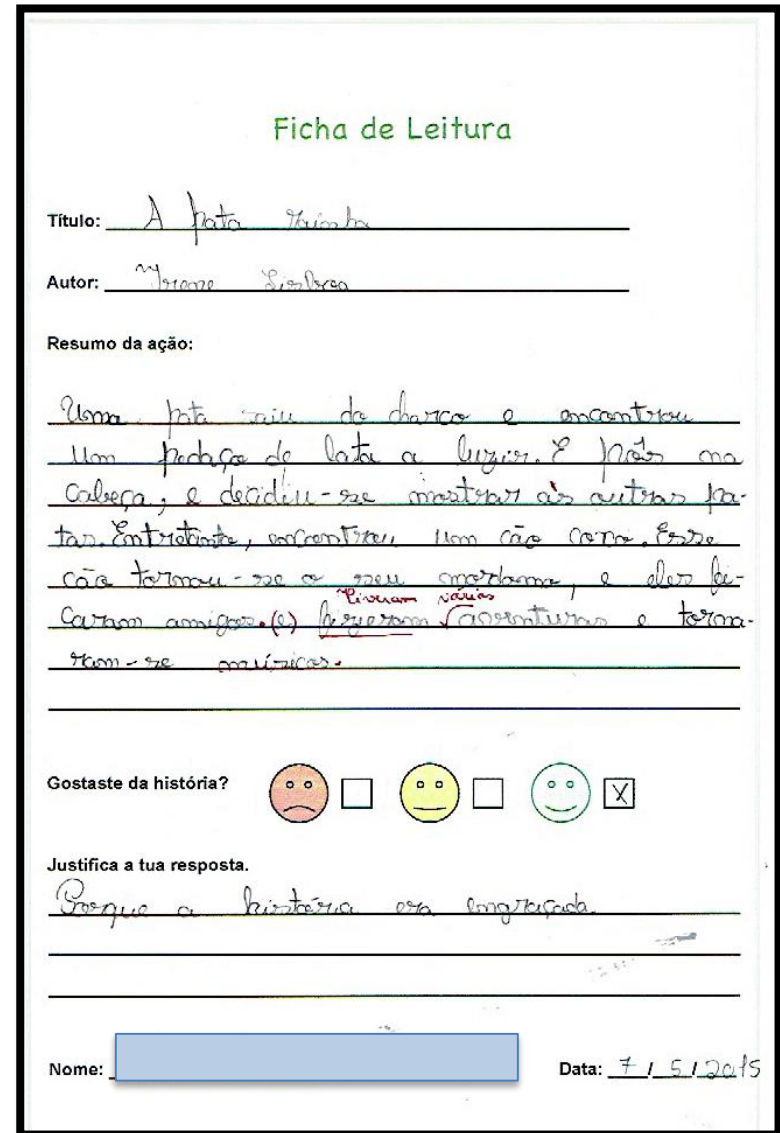 Ficha de Leitura
Título: A pata rainha
Autor: Irene Lisboa
Resumo da ação:
Uma pata saiu do charco e encontrou
um pedaço de lata a luzir. E pôs na
cabeça, e decidiu-se mostrar às outras pa-
tas. Entretanto, encontrou um cão coxo. Esse
cão tornou-se o seu mordomo, e eles fi-
Tiveram várias
caram amigos. (e) fizeram √ aventuras e torna-
ram-se músicos.
Gostaste da história? X
Justifica a tua resposta.
Porque a história era engraçada.
Nome:
Data: 7/5/2015